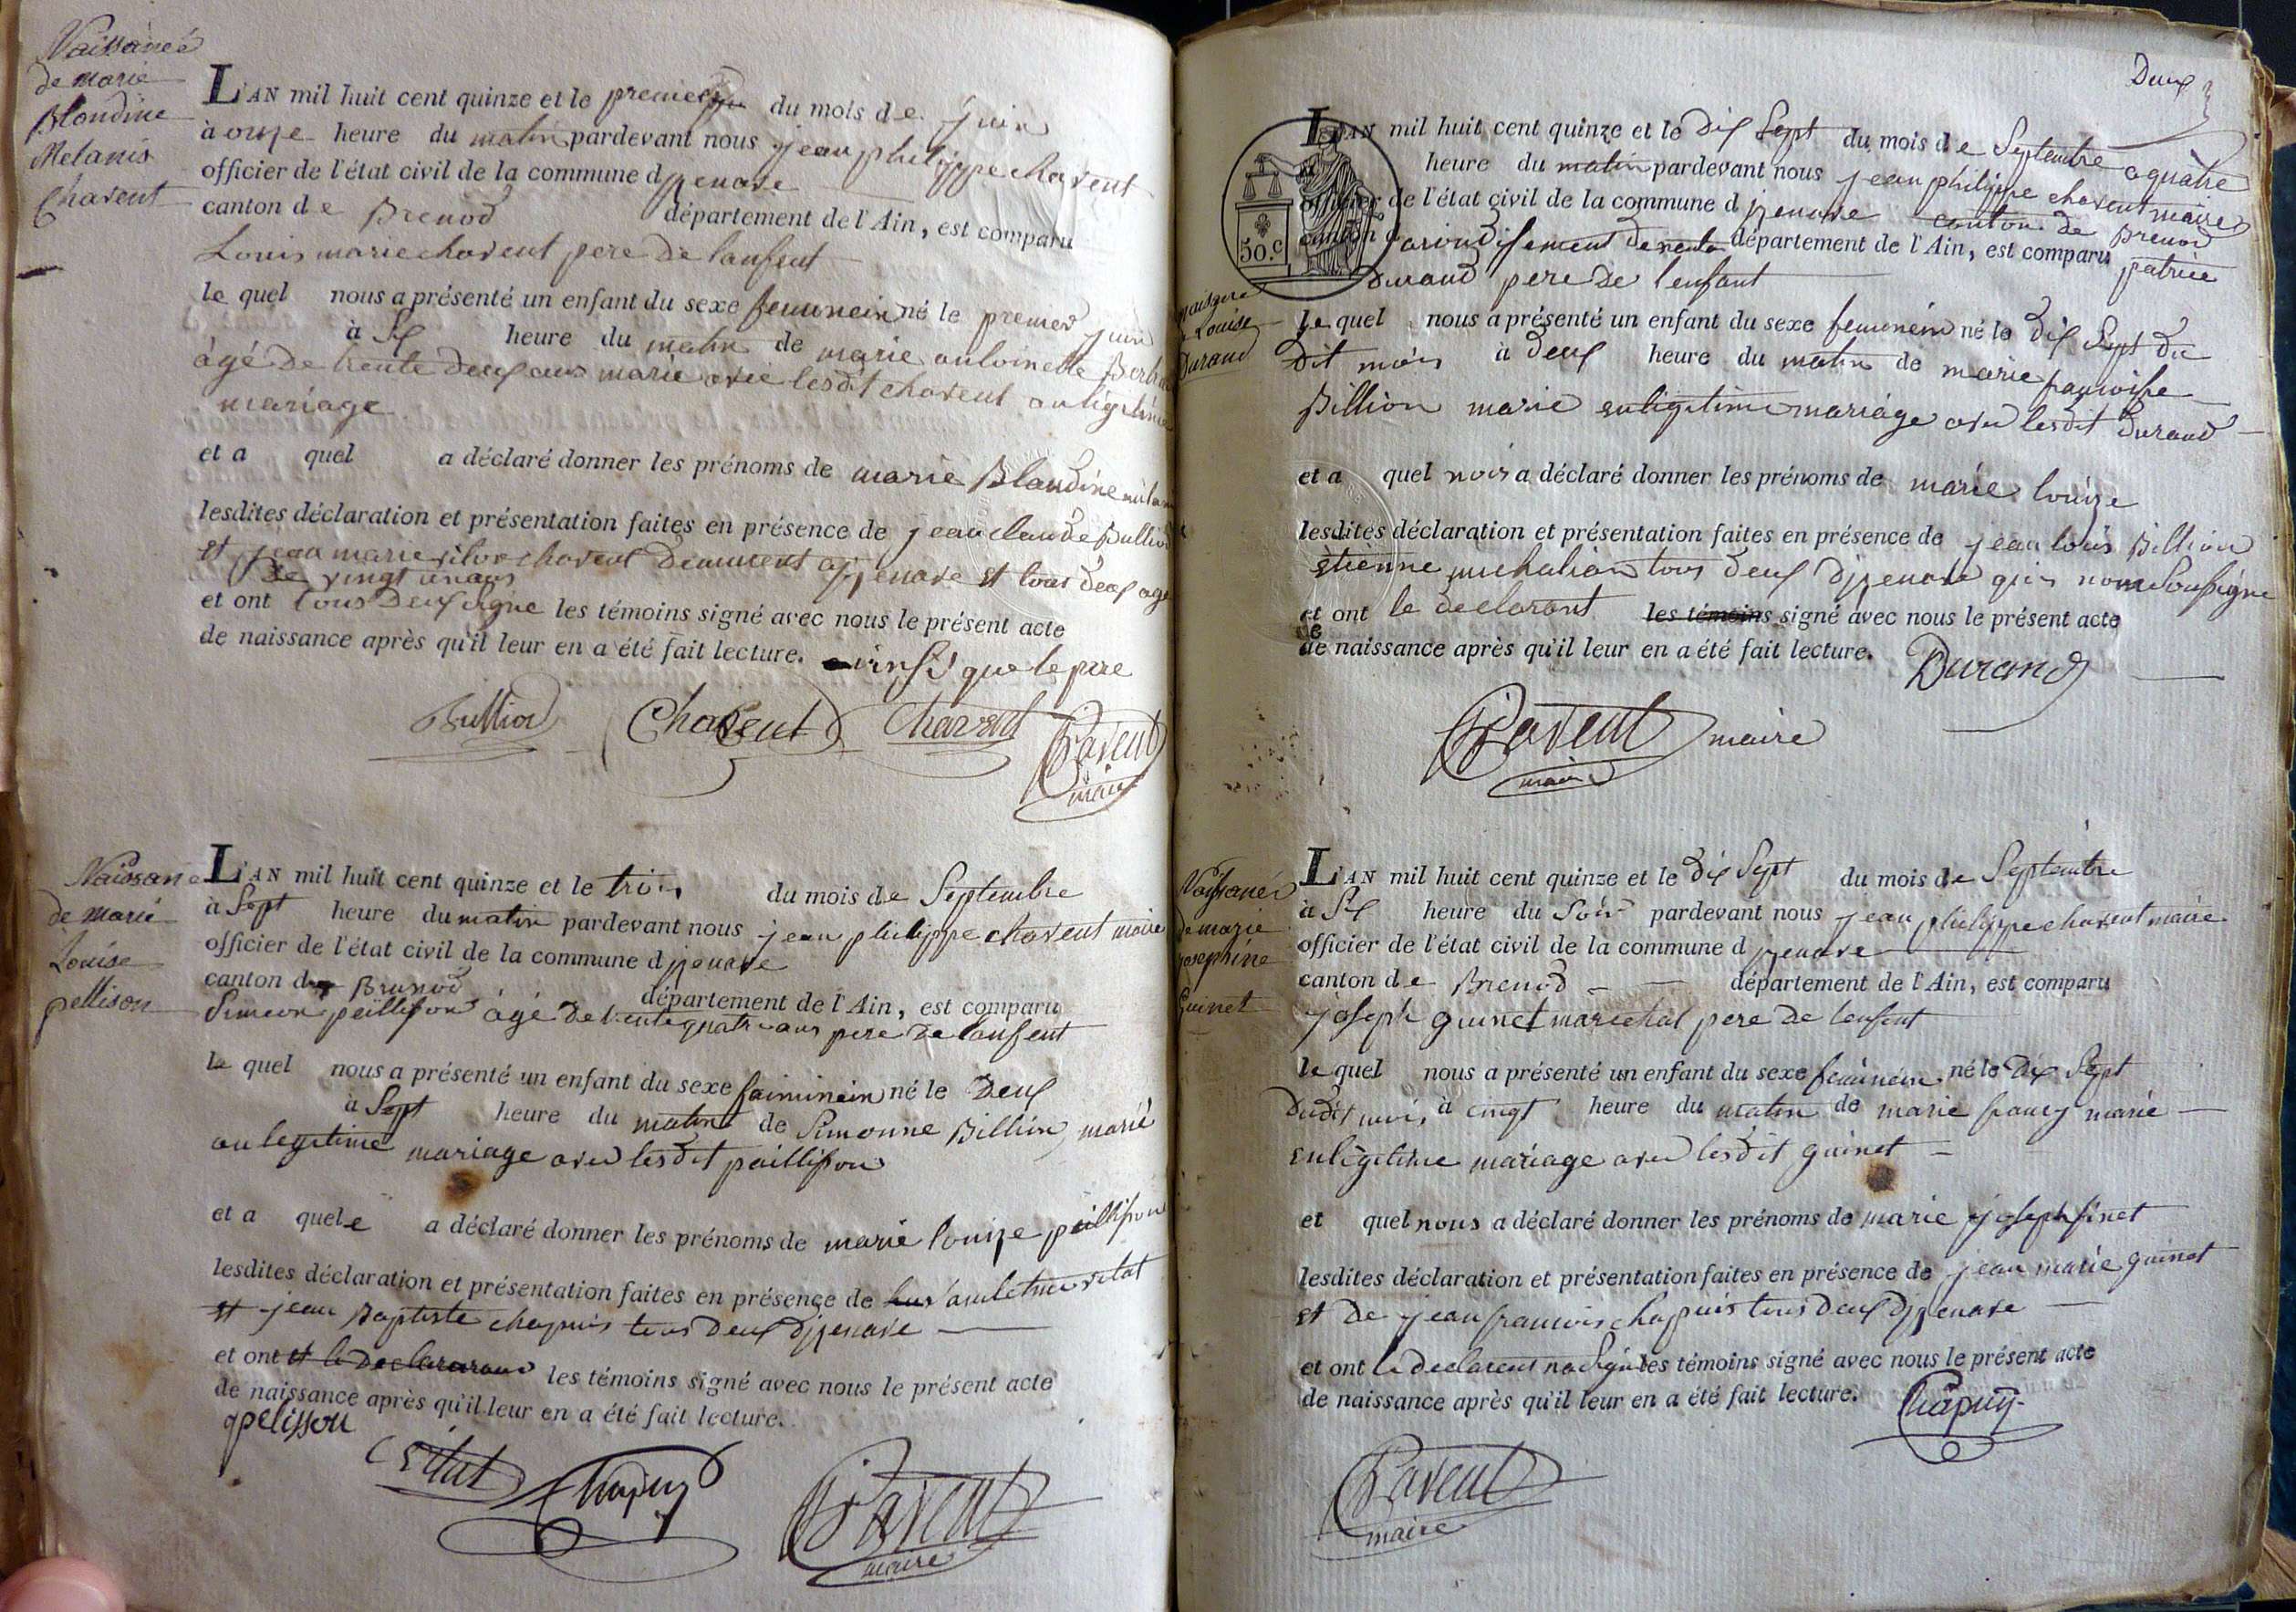 Naissance
de marie
Blondine
Melanis
Chavent
L'AN mil huit cent quinze et le premier du mois de juin
à onze heure du matin pardevant nous jean philippe chavent
officier de l'état civil de la commune d
canton de Brenod département de l'Ain, est comparu
Louis marie chavent pere de lanfent
le quel nous a présenté un enfant du sexe femunein né le premier juin
à Six heure du matin de marie antoinette
âgé de trente deux ans marie avec lesdit chavent an ligitime
mariage
et a quel a déclaré donner les prénoms de marie Blandine
lesdites déclaration et présentation faites en présence de jean claude Bulliod
et jean marie chavent et tous deux age
de vingt un ans
et ont tous deux signe les témoins signé avec nous le présent acte
de naissance après qu'il leur en a été fait lecture. ainsi que le pere
Bulliod Chavent Chavent Chavent
maire
Naissance
de marie
Louise
pellison
L'AN mil huit cent quinze et le trois du mois de Septembre
à Sept heure du matin pardevant nous jean philippe chavent maire
officier de l'état civil de la commune d
canton de Brunod département de l'Ain, est comparu
Simeon peillison âgé de trente quatre ans pere de lanfent
le quel nous a présenté un enfant du sexe faiminein né le Deux
à Sept heure du matin de Simonne Billion, marié
an legitime mariage avec lesdit paillison
et a quele a déclaré donner les prénoms de marie louize peillison
lesdites déclaration et présentation faites en présence de
et jean Baptiste chapuis tous deux
et ont et le declararant les témoins signé avec nous le présent acte
de naissance après qu'il leur en a été fait lecture.
pelisson
Chapuy Chavent
maire
Deux
L'AN mil huit cent quinze et le dix Sept du mois de Septembre a quatre
heure du matin pardevant nous jean philippe chavent maire
officier de l'état civil de la commune d canton de Brenod
canton département de l'Ain, est comparu patrice
Durand pere de l'enfant
50.c
naissance
de Louise
Durand
le quel nous a présenté un enfant du sexe femenein né le dix Sept du
Dit mois à deux heure du matin de marie francoise
Billion marie enligitime mariage avec lesdit Durand
et a quel nous a déclaré donner les prénoms de marie louize
lesdites déclaration et présentation faites en présence de jean louis Billion
étienne tous deux
et ont le declarant les témoins signé avec nous le présent acte
de naissance après qu'il leur en a été fait lecture. Durand
Chavent maire
maire
Naissance
de marie
josephine
Guinet
L'AN mil huit cent quinze et le dix Sept du mois de Septembre
à Six heure du Soir pardevant nous jean philippe chavent maire
officier de l'état civil de la commune d
canton de Brenod département de l'Ain, est comparu
joseph guinet marechal pere de lenfent
le quel nous a présenté un enfant du sexe femenein né le dix Sept
dudit mois à cingt heure du matin de marie francy marie
enligitime mariage avec lesdit guinet
et quel nous a déclaré donner les prénoms de marie josephfinet
lesdites déclaration et présentation faites en présence de jean marie guinet
et de jean francois chapuis tous deux
et ont le declarent les témoins signé avec nous le présent acte
de naissance après qu'il leur en a été fait lecture. Chapuy
Chavent
maire